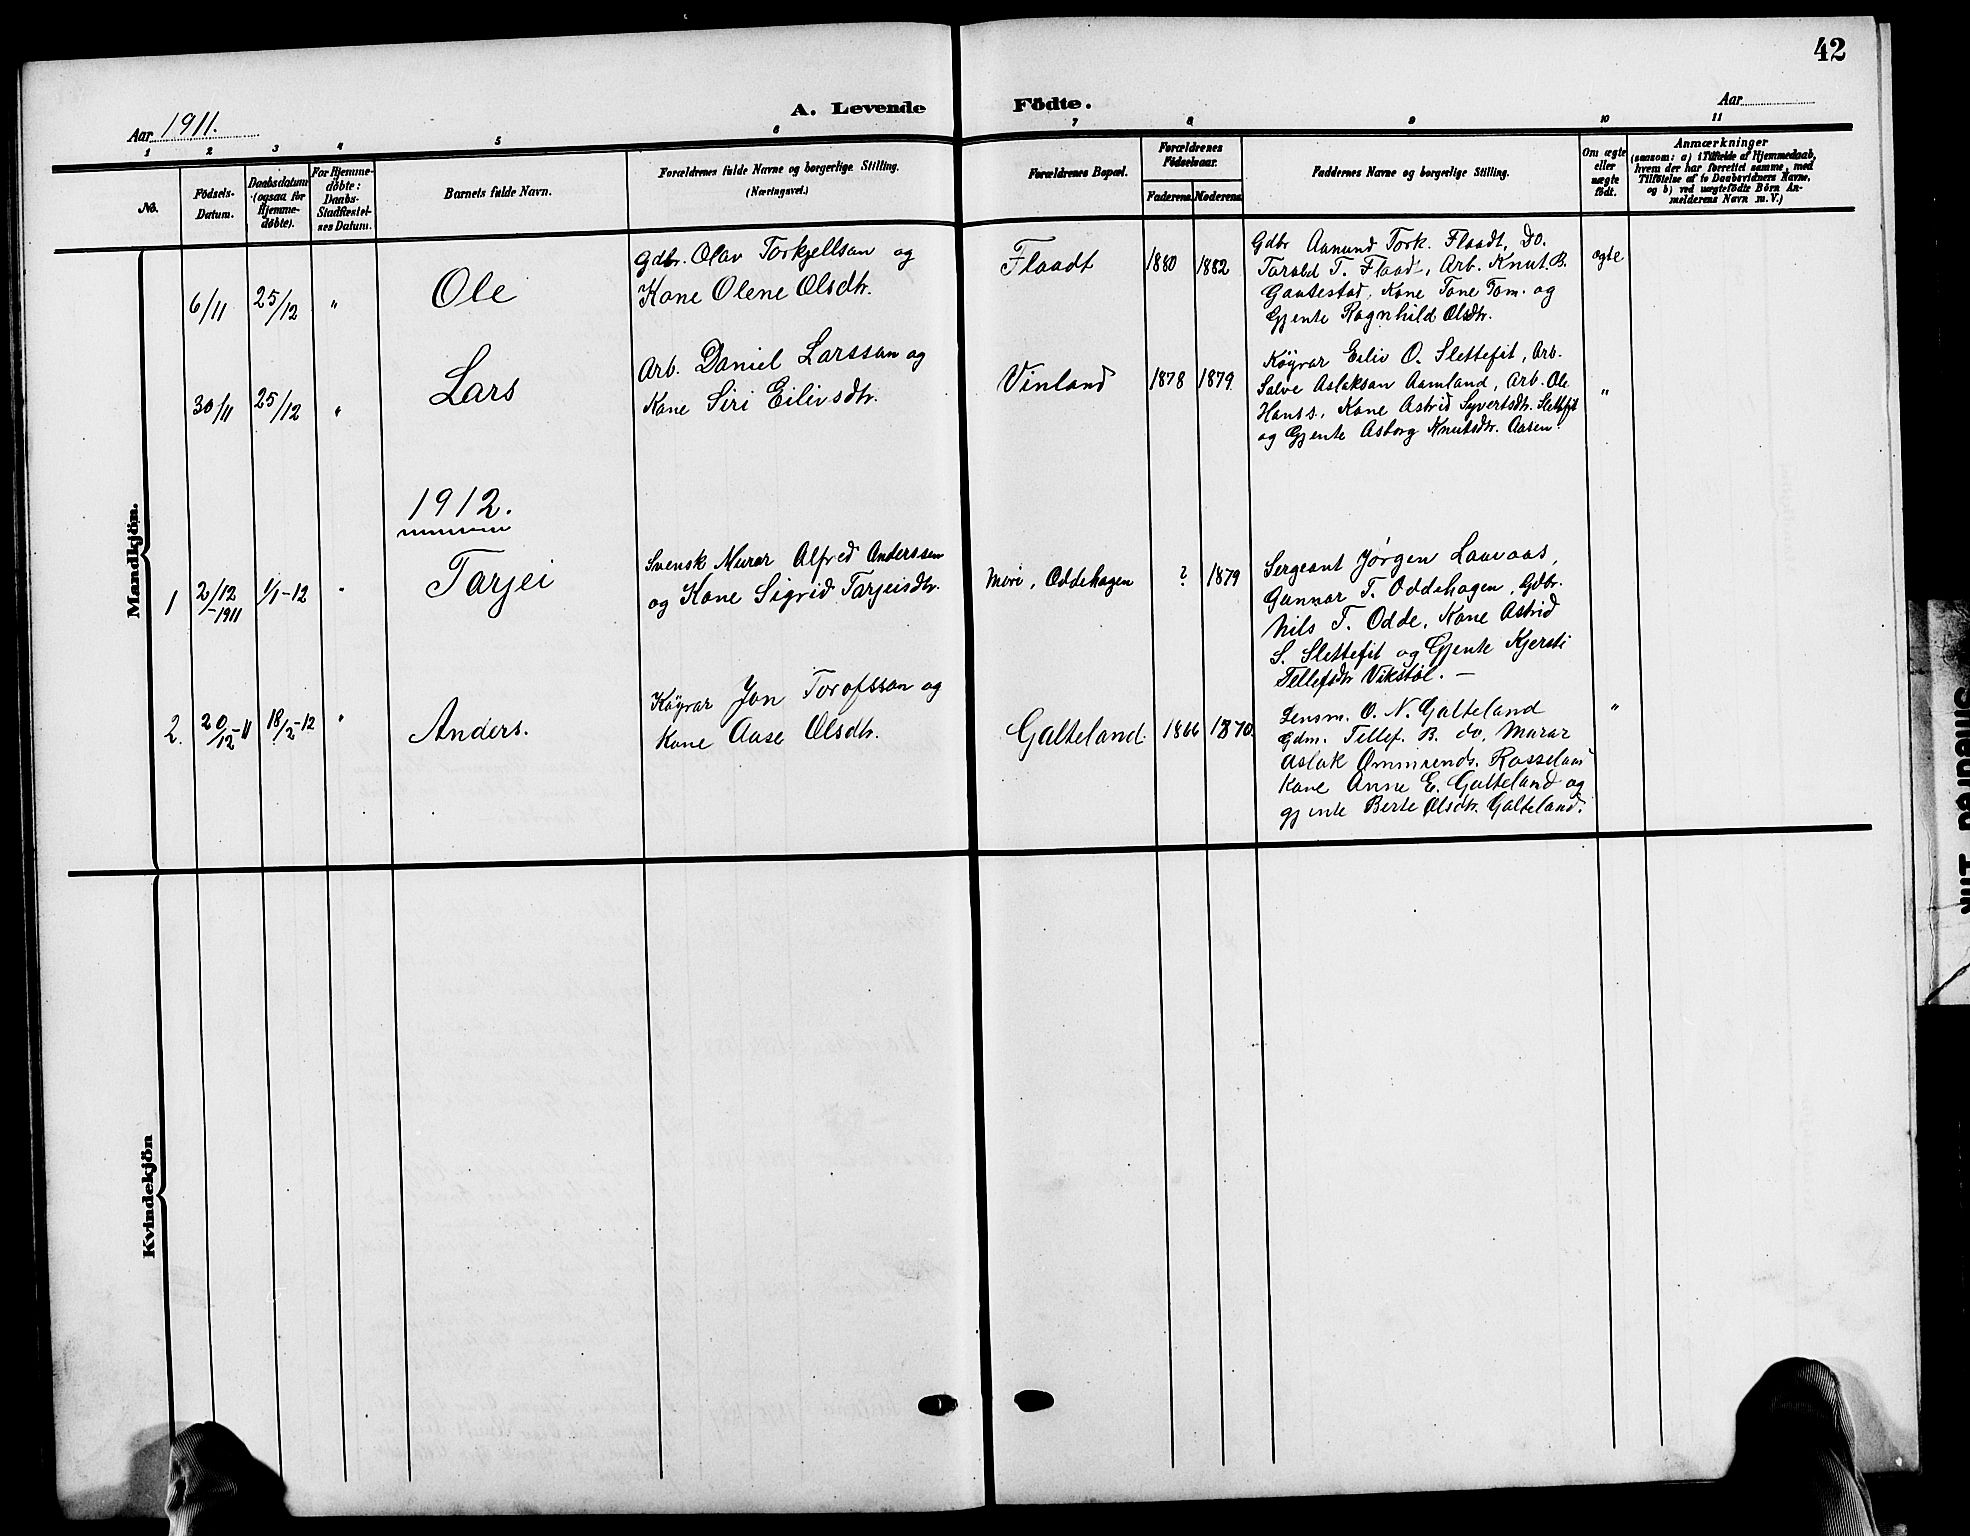 42
Aar 1911.
A. Levende Födte.
Aar
1 2 3 4 5 6 7 8 9 10 11
No.
Födsels-
Datum.
Daabsdatum
(ogsaa for
Hjemme-
døbte).
For Hjemme-
døbte:
Daabs-
Stadfæstel-
ses Datum.
Barnets fulde Navn.
Forældrenes fulde Navne og borgerlige Stilling.
(Næringsvei.)
Forældrenes Bopæl.
Forældrenes
Födselsaar.
Faderens. Moderens.
Faddernes Navne og borgerlige Stilling.
Om ægte
eller
uægte
født.
Anmærkninger
(saasom: a) i Tilfælde af Hjemmedaab,
hvem der har forrettet samme, med
Tilføielse af to Daabsvidners Navne,
og b) ved uægtefødte Börn An-
melderens Navn m. V.)
Mandkjön.
6/11 25/12 "
Ole
Gdbr. Olav Torkjellsan og
Kone Olene Olsdtr.
Flaadt
1880 1882
Gdbr Aanund Tork. Flaadt, Do.
Tarald T. Flaadt, Arb. Knut B.
Gautestad, Kone Tone Tom. og
Gjente Ragnhild Olsdtr.
ægte
30/11 25/12 "
Lars
Arb. Daniel Larssan og
Kone Siri Eilivsdtr.
Vinland
1878 1879
Köyrar Eiliv O. Slettefit, Arb.
Salve Aslaksan Aamland, Arb. Ole
Hanss, Kone Astrid Syvertsdtr. Slettefit
og Gjente Asborg Knutsdtr. Aasen.
"
1912.
1 2/12 -1911 1/1-12 "
Tarjei
Svensk Murar Alfred Anderssen
og Kone Sigrid Tarjeisdtr.
Moi, Oddehagen
? 1879
Sergeant Jørgen Lauvaas,
Gunnar T. Oddehagen, Gdbr.
Nils T. Odde, Kone Astrid
S. Slettefit og Gjente Kjersti
Tellefsdtr Vikstøl. —
2. 20/12-11 18/2-12 "
Anders.
Köyrar Jon Torofssan og
Kone Aase Olsdtr.
Galteland.
1866 1870.
Lensm. O. N. Galteland
Gdm. Tellef. B. do, Murar
Aslak Ommunds. Rosseland
Kone Anne E. Galteland og
gjente Berte Olsdtr. Galteland.
"
Kvindekjön